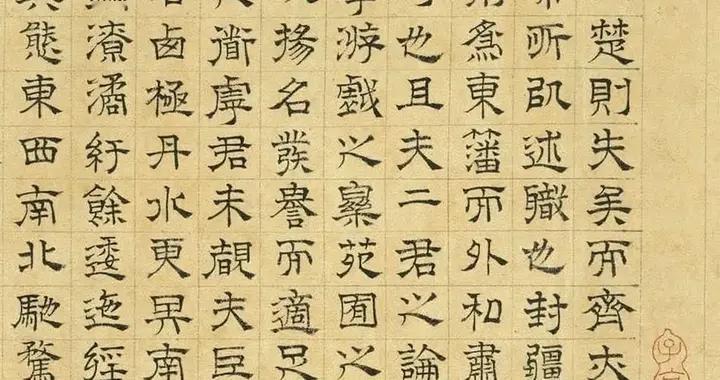 楚則失矣而齊亦
所以述職也封疆
爲東藩而外私肅
也且夫二君之論
游戲之樂苑囿之
揚名發譽而適足
道虖君未覩夫巨
卤極丹水更其南
潦潏紆餘逶迤經
態東西南北馳騖